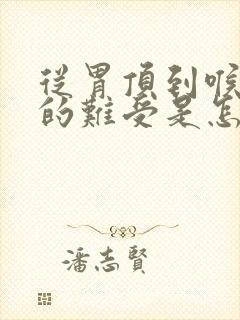 從胃頂到喉
的難受是怎
潘志賢